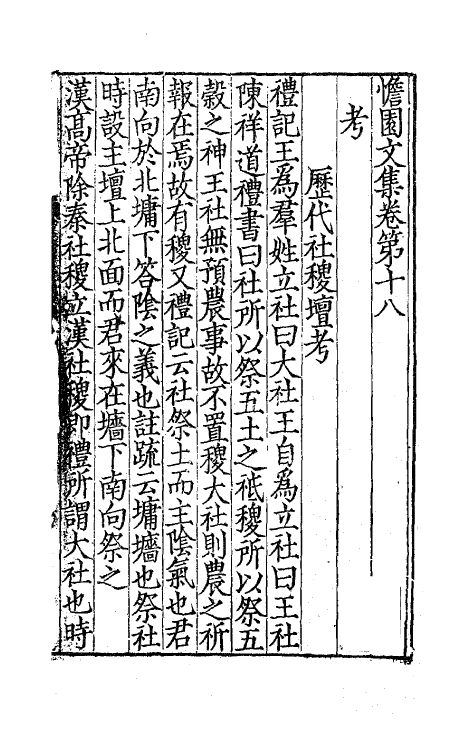 憺園文集卷第十八
考
歷代社稷壇考
禮記王為羣姓立社曰大社王自為立社曰王社
陳祥道禮書曰社所以祭五土之祇稷所以祭五
穀之神王社無預農事故不置稷大社則農之祈
報在焉故有稷又禮記云社祭土而主陰氣也君
南向於北墉下答陰之義也註疏云墉墻也祭社
時設主壇上北面而君來在墻下南向祭之
漢高帝除秦社稷立漢社稷即禮所謂大社也時